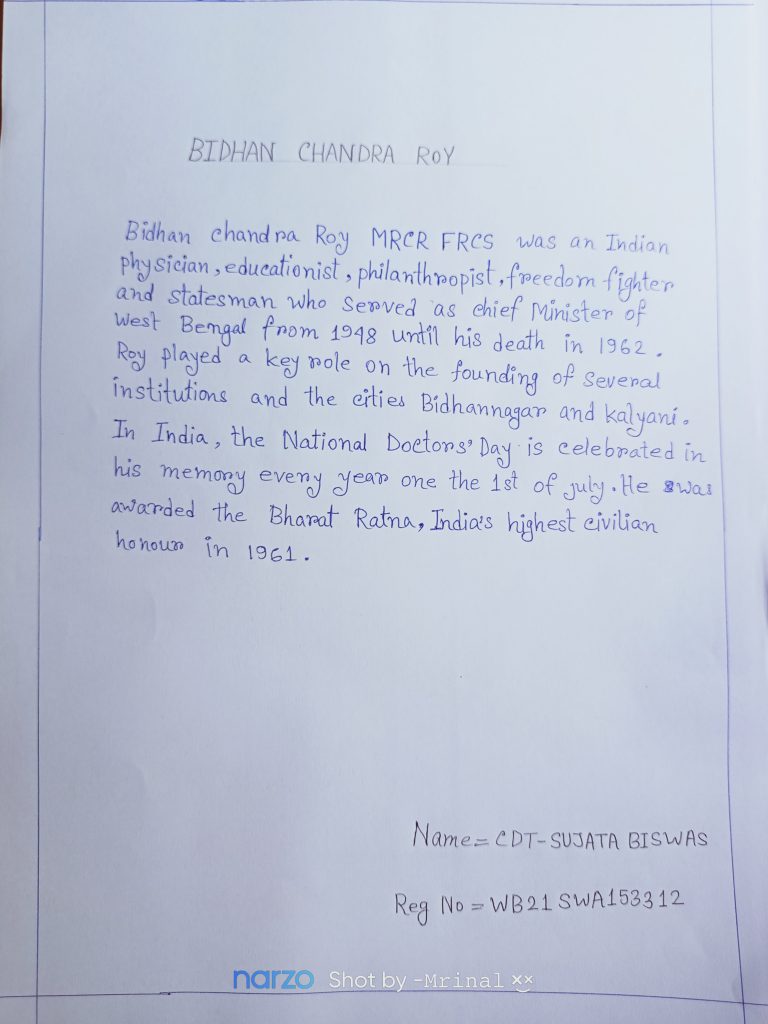 BIDHAN CHANDRA ROY
Bidhan chandra Roy MRCR FRCS was an Indian
physician, educationist, philanthropist, freedom fighter
and statesman who served as chief Minister of
West Bengal from 1948 until his death in 1962.
Roy played a key role on the founding of several
institutions and the cities Bidhannagar and kalyani.
In India, the National Doctors' Day is celebrated in
his memory every year one the 1st of july. He was
awarded the Bharat Ratna, India's highest civilian
honour in 1961.
Name = CDT-SUJATA BISWAS
Reg No = WB21 SWA153312
narzo Shot by -Mrinal